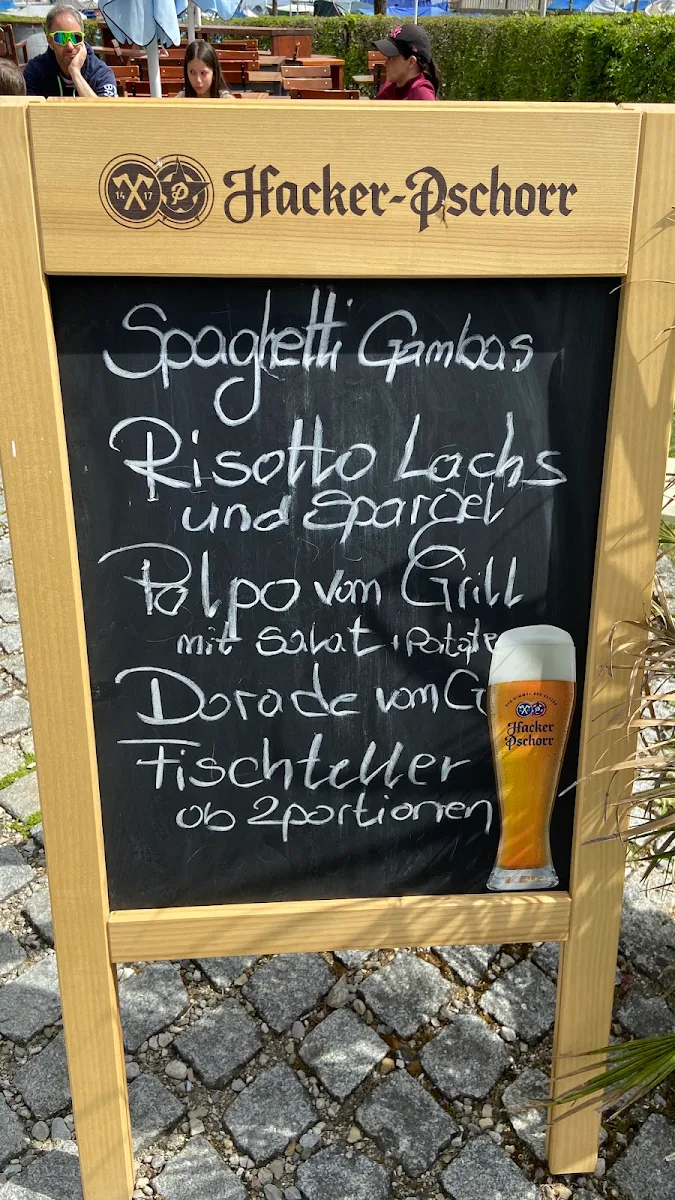 14 17 P Hacker-Pschorr
Spaghetti Gambas
Risotto Lachs
und Spargel
Polpo vom Grill
mit Salat +
Dorade vom G
Fischteller
ob 2 portionen
Hacker
Pschorr